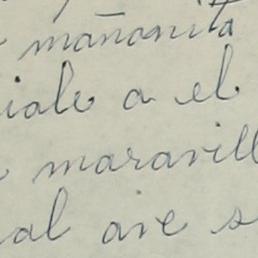 mañanita
iale a el
maravill
al aire s